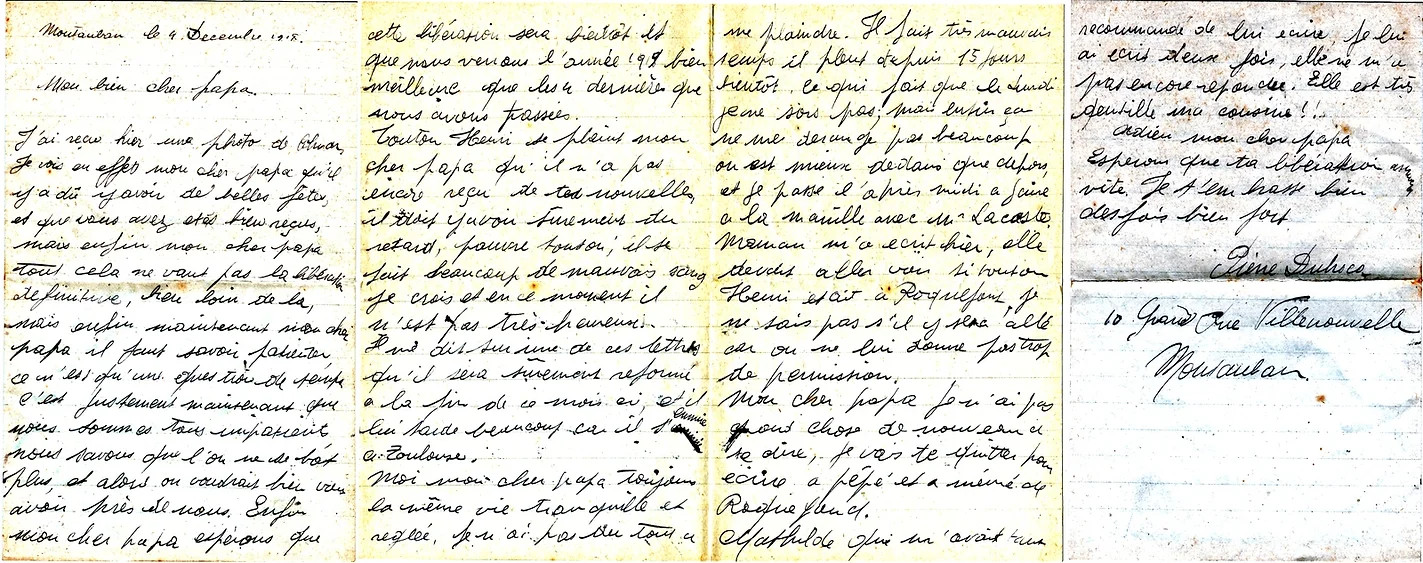 Montauban le 4 Decembre 1918.
Mon bien cher papa.
J'ai reçu hier une photo de
Je vois en effet mon cher papa qu'il
y a dû y avoir de belles fêtes,
et que vous avez etes bien reçus,
mais enfin mon cher papa
tout cela ne vaut pas la libération
definitive, bien loin de la,
mais enfin maintenant mon cher
papa il faut savoir patienter
ce n'est qu'une question de temps
c'est justement maintenant que
nous sommes tous impatients
nous savons que l'on ne se bat
plus, et alors on voudrait bien vous
avoir près de nous. Enfin
mon cher papa espérons que
cette libération sera bientôt et
que nous verrons l'année 1919 bien
meilleure que les 4 dernières que
nous avons passées.
Tonton Henri se plaint mon
cher papa qu'il n'a pas
encore reçu de tes nouvelles,
il doit y avoir surement du
retard, pauvre tonton, il se
fait beaucoup de mauvais sang
je crois et en ce moment il
n'est pas très heureux.
Il me dit sur une de ces lettres
qu'il sera surement reformé
a la fin de ce mois ci, et il
lui tarde beaucoup car il s'ennuie
a Toulouse.
Moi mon cher papa toujours
la même vie tranquille et
reglée, je n'ai pas du tout a
me plaindre. Il fait très mauvais
temps il pleut depuis 15 jours
bientôt, ce qui fait que le lundi
je ne sors pas; mais enfin ça
ne me derange pas beaucoup
on est mieux dedans que dehors,
et je passe l'après midi a faire
a la manille avec Mr Lacoste.
Maman m'a ecrit hier, elle
devait aller voir si tonton
Henri etait à Roquefort, je
ne sais pas s'il y sera allé
car on ne lui donne pas trop
de permission.
Mon cher papa je n'ai pas
grand chose de nouveau a
te dire, je vais te quitter pour
écrire a pépé et a mémé de
Roquefort.
Mathilde qui m'avait tant
recommandé de lui ecrire, je lui
ai ecrit deux fois, elle ne m'a
pas encore repondu. Elle est très
gentille ma cousine!!
Adieu mon cher papa
Esperons que ta libération
vite. Je t'embrasse bien
des fois bien fort.
Pierre
10 Grand Rue Villenouvelle
Montauban.